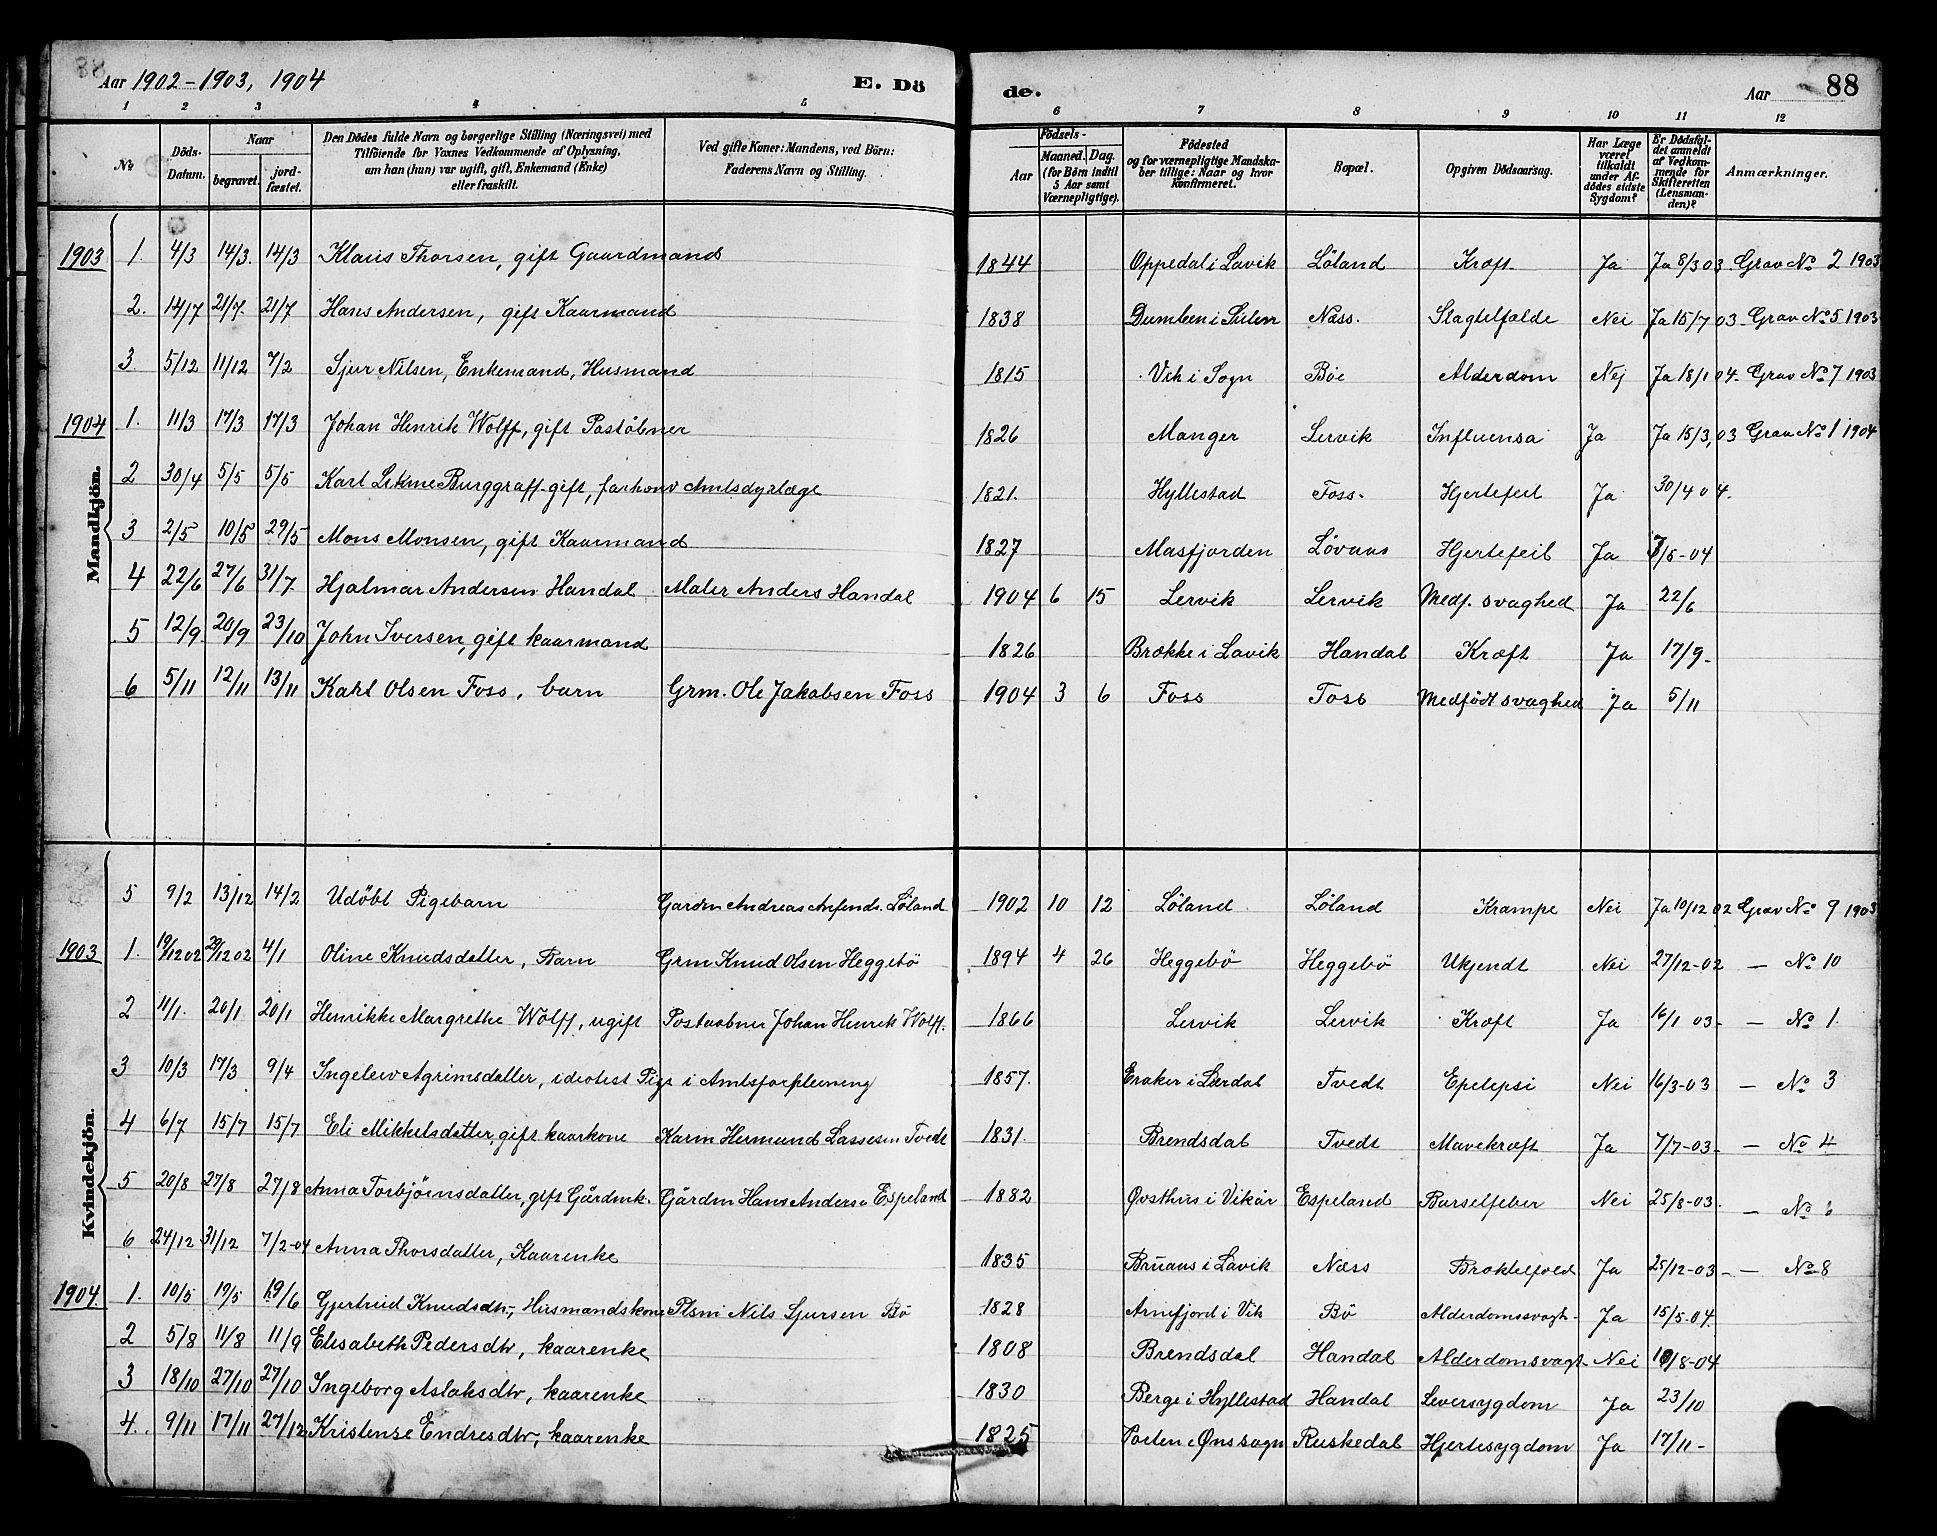 88
Aar 1902-1903, 1904
E. Dö
de.
Aar
88
1 2 3 4 5 6 7 8 9 10 11 12
No
Döds-Datum.
Naar
begravet.
jord-fæstet.
Den Dödes fulde Navn og borgerlige Stilling (Næringsvei) med
Tilföiende for Voxnes Vedkommende af Oplysning,
om han (hun) var ugift, gift, Enkemand (Enke)
eller fraskilt.
Ved gifte Koner: Mandens, ved Börn:
Faderens Navn og Stilling.
Födsels-
Aar
Maaned. Dag.
(for Börn indtil
5 Aar samt
Værnepligtige).
Födested
og for værnepligtige Mandska-
ber tillige: Naar og hvor
Konfirmeret.
Bopæl.
Opgiven Dödsaarsag.
Har Læge
været
tilkaldt
under Af-
dödes sidste
Sygdom?
Er Dödsfal-
det anmeldt
af Vedkom-
mende for
Skifteretten
(Lensman-
den)?
Anmærkninger.
Mandkjön.
1903 1. 4/3 14/3. 14/3 Klaus Thorsen, gift Gaardmand 1844 Oppedal i Lavik Löland Kræft Ja Ja 8/3 03. Grav No 2 1903
2. 14/7 21/7. 21/7 Hans Andersen, gift Kaarmand 1838 Dumben i Sulen Næss. Slagtilfælde Nei Ja 15/7 03. Grav No 5 1903
3 5/12 11/12 7/2 Sjur Nilsen, Enkemand, Husmand 1815 Vik i Sogn Böe Alderdom Nej Ja 18/1 04. Grav No 7 1903
1904 1. 11/3 17/3 17/3 Johan Henrik Wolff, gift Postöbner 1826 Manger Lervik Influensa Ja Ja 15/3, 03 Grav No 1 1904
2 30/4 5/5 5/5 Karl Burggraff gift, Amtsdyrlæge 1821. Hyllestad Foss. Hjertefeil Ja 30/4 04.
3 2/5 10/5 29/5 Mons Monsen, gift Kaarmand 1827 Masfjorden Lövaas Hjertefeil Ja 7/5-04
4 22/6 27/6 31/7 Hjalmar Andersen Handal Maler Anders Handal 1904 6 15 Lervik Lervik Medf. svaghed Ja 22/6
5 12/9. 20/9 23/10 John Iversen, gift kaarmand 1826 Brække i Lavik Handal Kræft Ja 17/9-
6 5/11 12/11 13/11 Karl Olsen Foss, barn Grm. Ole Jakobsen Foss 1904 3 6 Foss Foss Medfödt svaghed Ja 5/11
Kvindekjön.
5 9/2 13/12 14/2 Udöbt Pigebarn Gardm Andreas Anfinds. Löland 1902 10 12 Löland Löland Krampe Nei Ja 10/12 02 Grav No 9 1903
1903 1. 19/12 02 29/12 02 4/1 Oline Knudsdatter, Barn Grm Knud Olsen Heggebö 1894 4 26 Heggebö Heggebö Ukjendt Nei 27/12-02 — No 10
2 11/1. 20/1 20/1 Henrikke Margrethe Wolff, ugift Postaabner Johan Henrik Wolff. 1866 Lervik Lervik Kræft Ja 16/1 03- — No 1.
3 10/3 17/3 9/4 Ingeleiv Agrimsdatter, idiotist Pige i Amtsforpleining 1857. Eraker i Lærdal Tvedt Epelepsi Nei 16/3-03 — No 3
4 6/7 15/7 15/7 Eli Mikkelsdatter, gift kaarkone Karm Hermund Lassesen Tvedt 1831. Brendsdal Tvedt Mavekræft Ja 7/7-03- — No 4
5 20/8 27/8 27/8 Anna Torbjörnsdatter, gift Gårdmk. Gårdm Hans Anders. Espeland 1882 Øvsthus i Vikör Espeland Barselfeber Nei 25/8-03. — No 6
6 24/12 31/12 7/2-04 Anna Thorsdatter, Kaarenke 1835 Bruaas i Lavik Næss Ja 25/12-03 — No 8
1904. 1. 10/5 19/5 19/6 Gjertrud Knudsdtr, Husmandskone Plsm Nils Sjursen Bö 1828 Arnefjord i Vik Bö Alderdomssvagh- Ja 15/5-04.
2 5/8 11/8 11/9 Elisabeth Pedersdtr, kaarenke 1808 Brendsdal Handal Alderdomsvagt Nei /8-04
3 18/10 27/10 27/10 Ingeborg Aslaksdtr, kaarenke 1830 Berge i Hyllestad Handal Leversygdom Ja 23/10
4. 9/11 17/11 27/12 Kristense Endresdtr, kaarenke 1825 Ruskedal Hjertesygdom Ja 17/11-